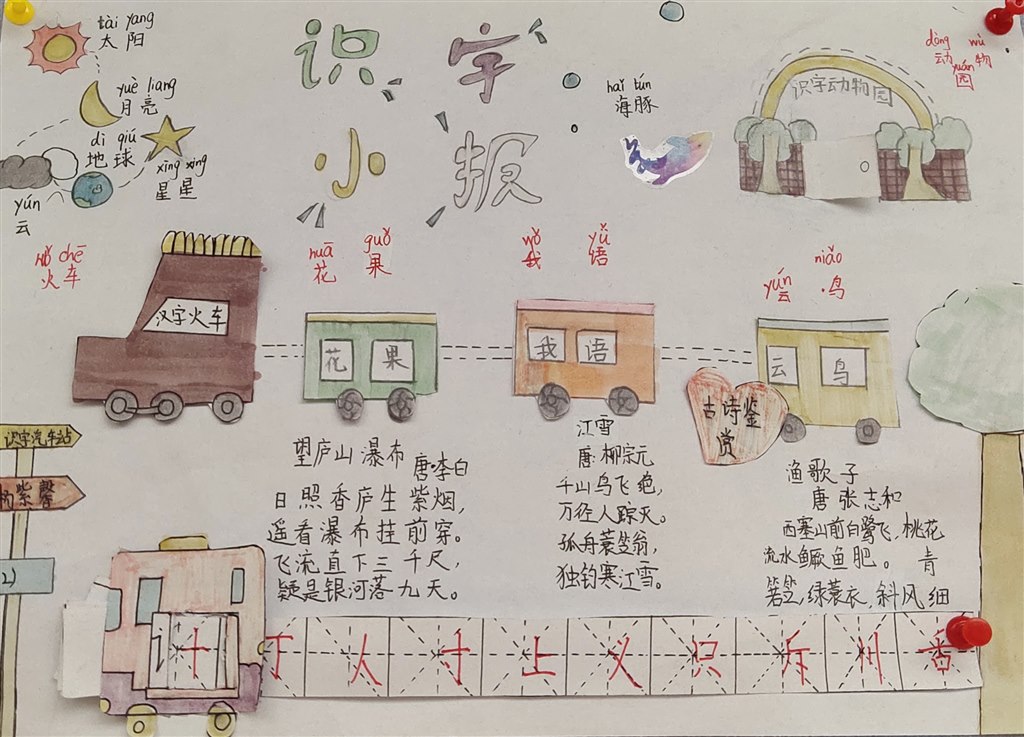 识字
小报
tài yang
太阳
yuè liang
月亮
dì qiú
地球
xīng xing
星星
yún
云
hǎi tún
海豚
dòng wù
动物
yuán
园
识字动物园
huǒ chē
火车
huā guǒ
花果
wǒ yǔ
我语
yún niǎo
云鸟
汉字火车
花果
我语
云鸟
古诗鉴
赏
识字汽车站
紫馨
2)
望庐山瀑布
唐·李白
日照香庐生紫烟,
遥看瀑布挂前穿。
飞流直下三千尺,
疑是银河落九天。
江雪
唐·柳宗元
千山鸟飞绝,
万径人踪灭。
孤舟蓑笠翁,
独钓寒江雪。
渔歌子
唐 张志和
西塞山前白鹭飞,桃花
流水鳜鱼肥。青
箬笠,绿蓑衣,斜风细
十丁太寸上义识斥州香